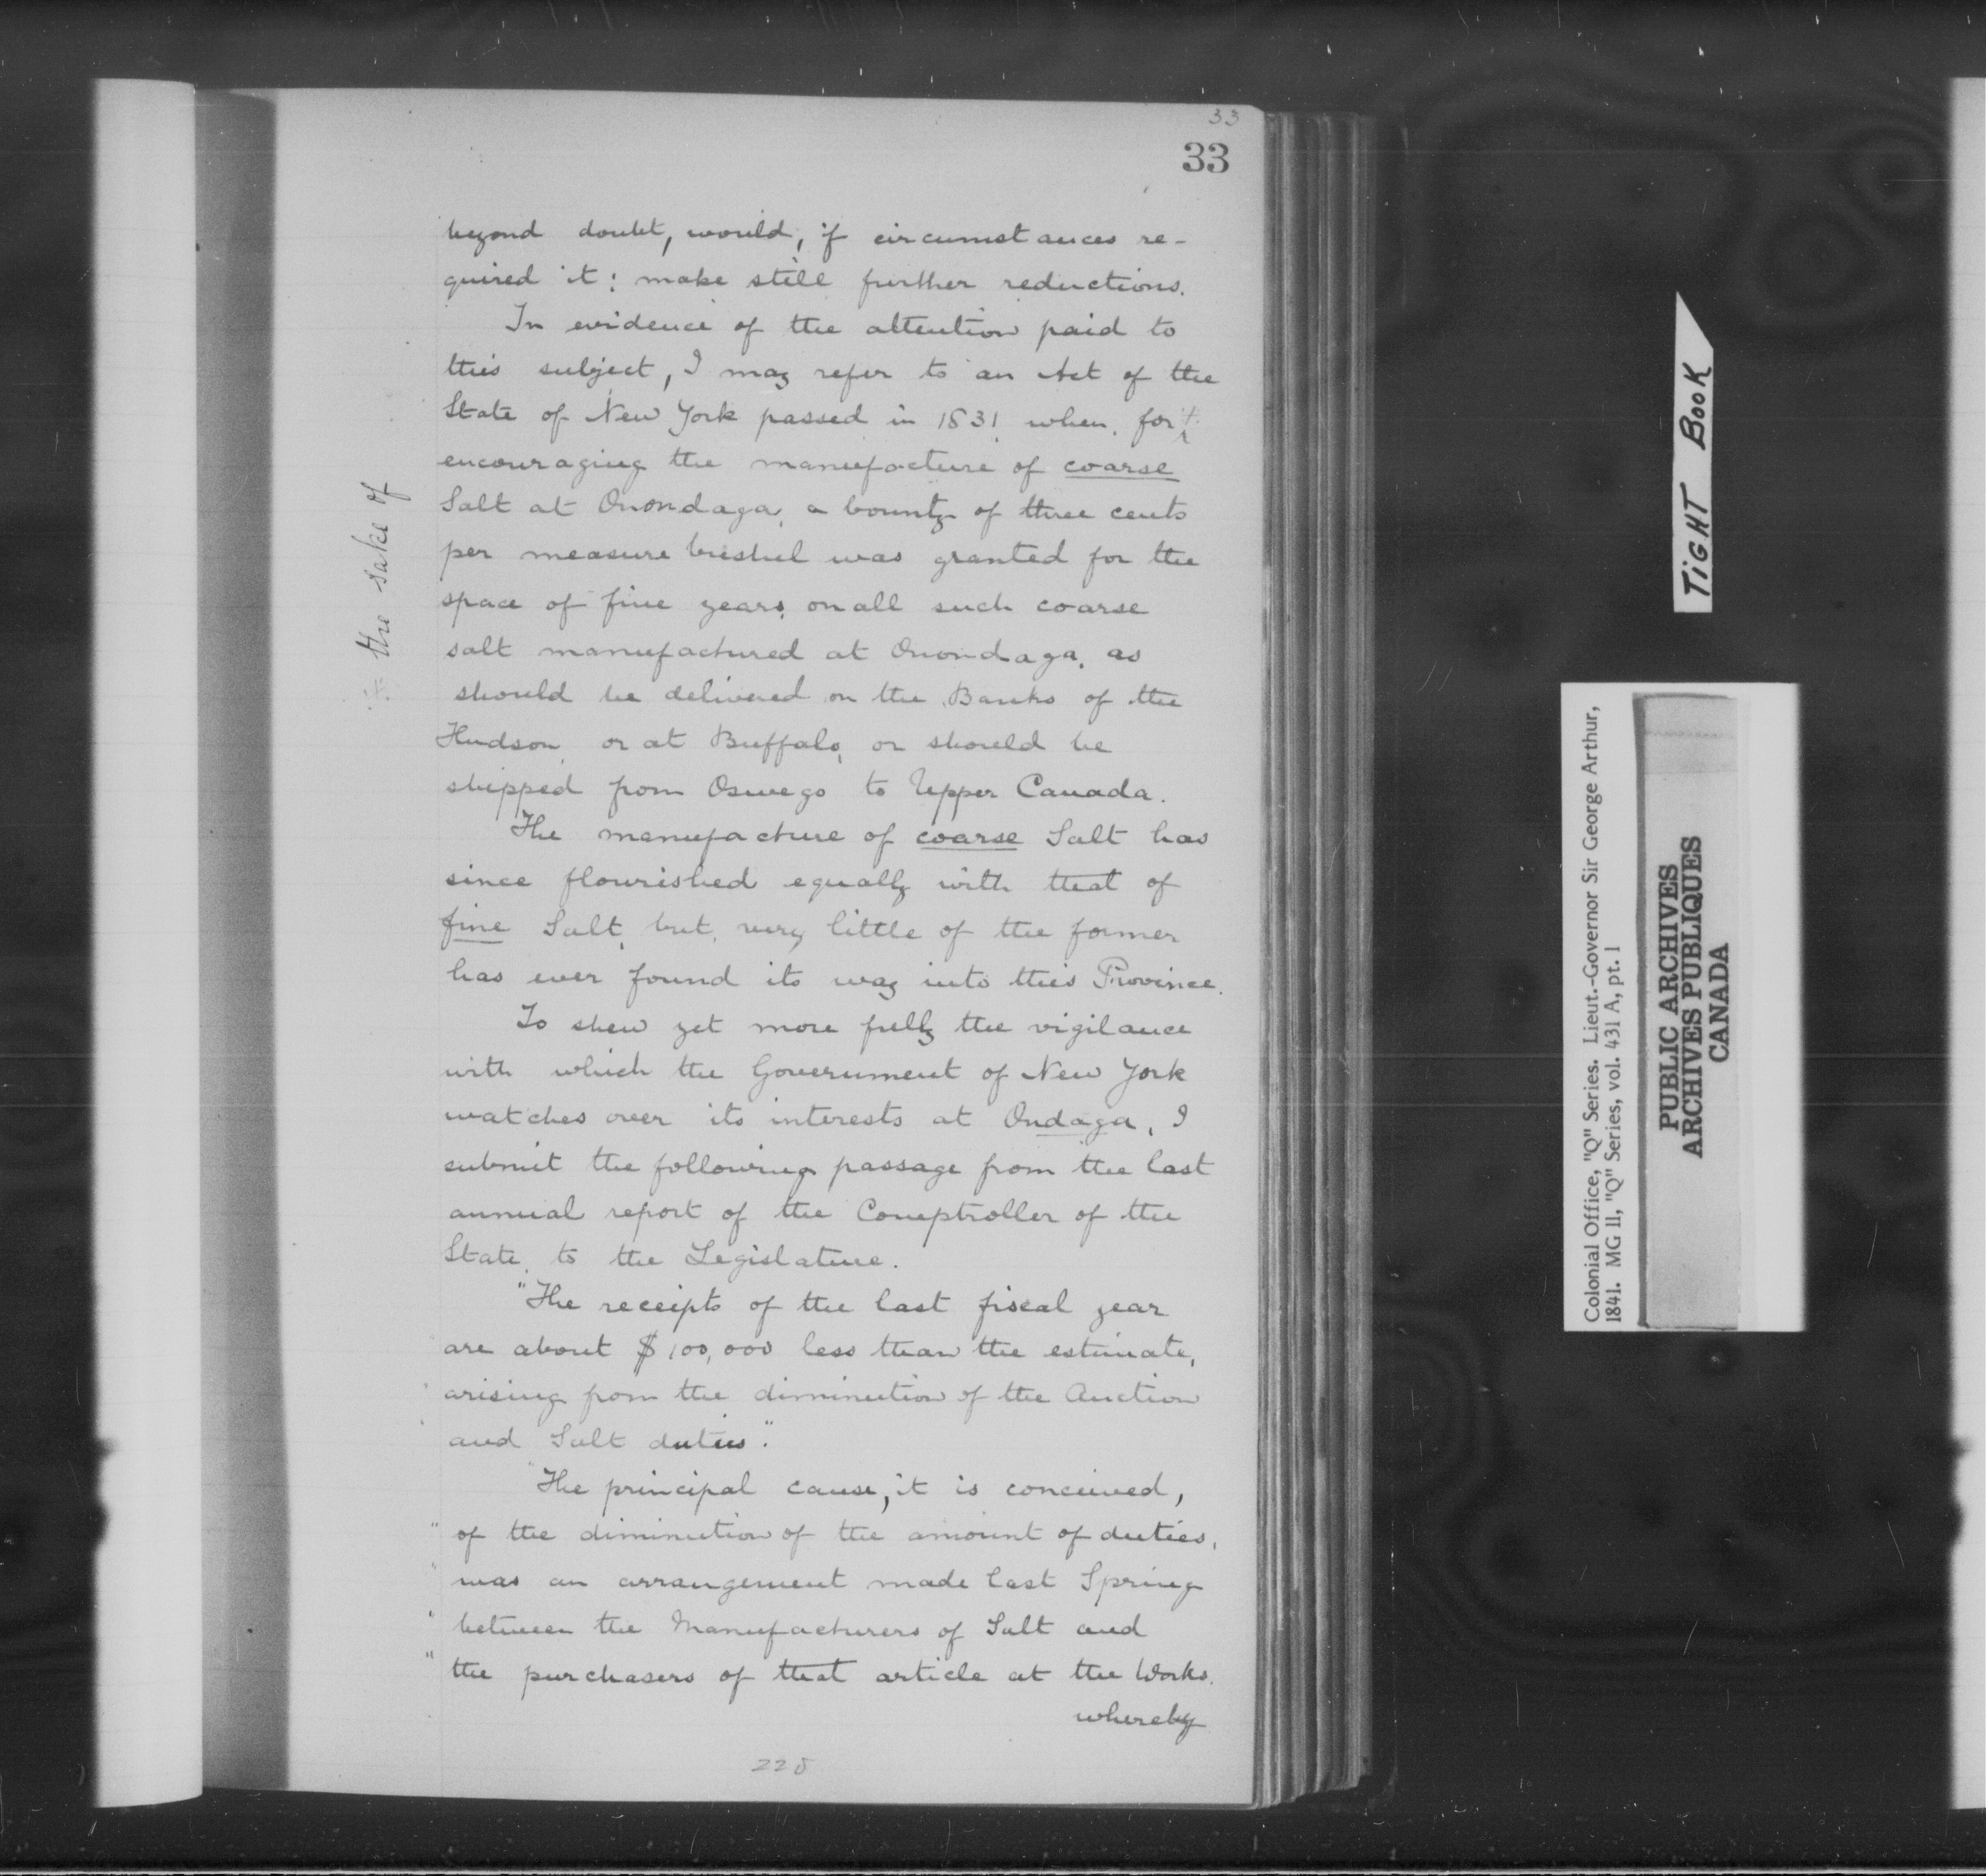 33
33
beyond doubt, would, if circumstances re-
quired it: make still further reductions.
In evidence of the attention paid to
this subject, I may refer to an Act of the
State of New York passed in 1831 when, for
encouraging the manufacture of coarse
Salt at Onondaga, a bounty of three cents
per measure bushel was granted for the
space of five years, on all such coarse
salt manufactured at Onondaga, as
should be delivered on the Banks of the
Hudson, or at Buffalo, or should be
shipped from Oswego to Upper Canada.
The manufacture of coarse Salt has
since flourished equally with that of
fine Salt, but, very little of the former
has ever found its way into this Province.
To shew yet more fully the vigilance
with which the Government of New York
watches over its interests at Ondaga, I
submit the following passage from the last
annual report of the Comptroller of the
State, to the Legislature.
"The receipts of the last fiscal year
are about $100,000 less than the estimate,
arising from the diminution of the Auction
and Salt duties".
"The principal cause, it is conceived,
" of the diminution of the amount of duties,
" was an arrangement made last Spring
" between the Manufacturers of Salt and
" the purchasers of that article at the Works.
whereby
228
the sake of
TiGHT BooK
Colonial Office, "Q" Series. Lieut.-Governor Sir George Arthur,
1841. MG 11, "Q" Series, vol. 431 A, pt. 1
PUBLIC ARCHIVES
ARCHIVES PUBLIQUES
CANADA